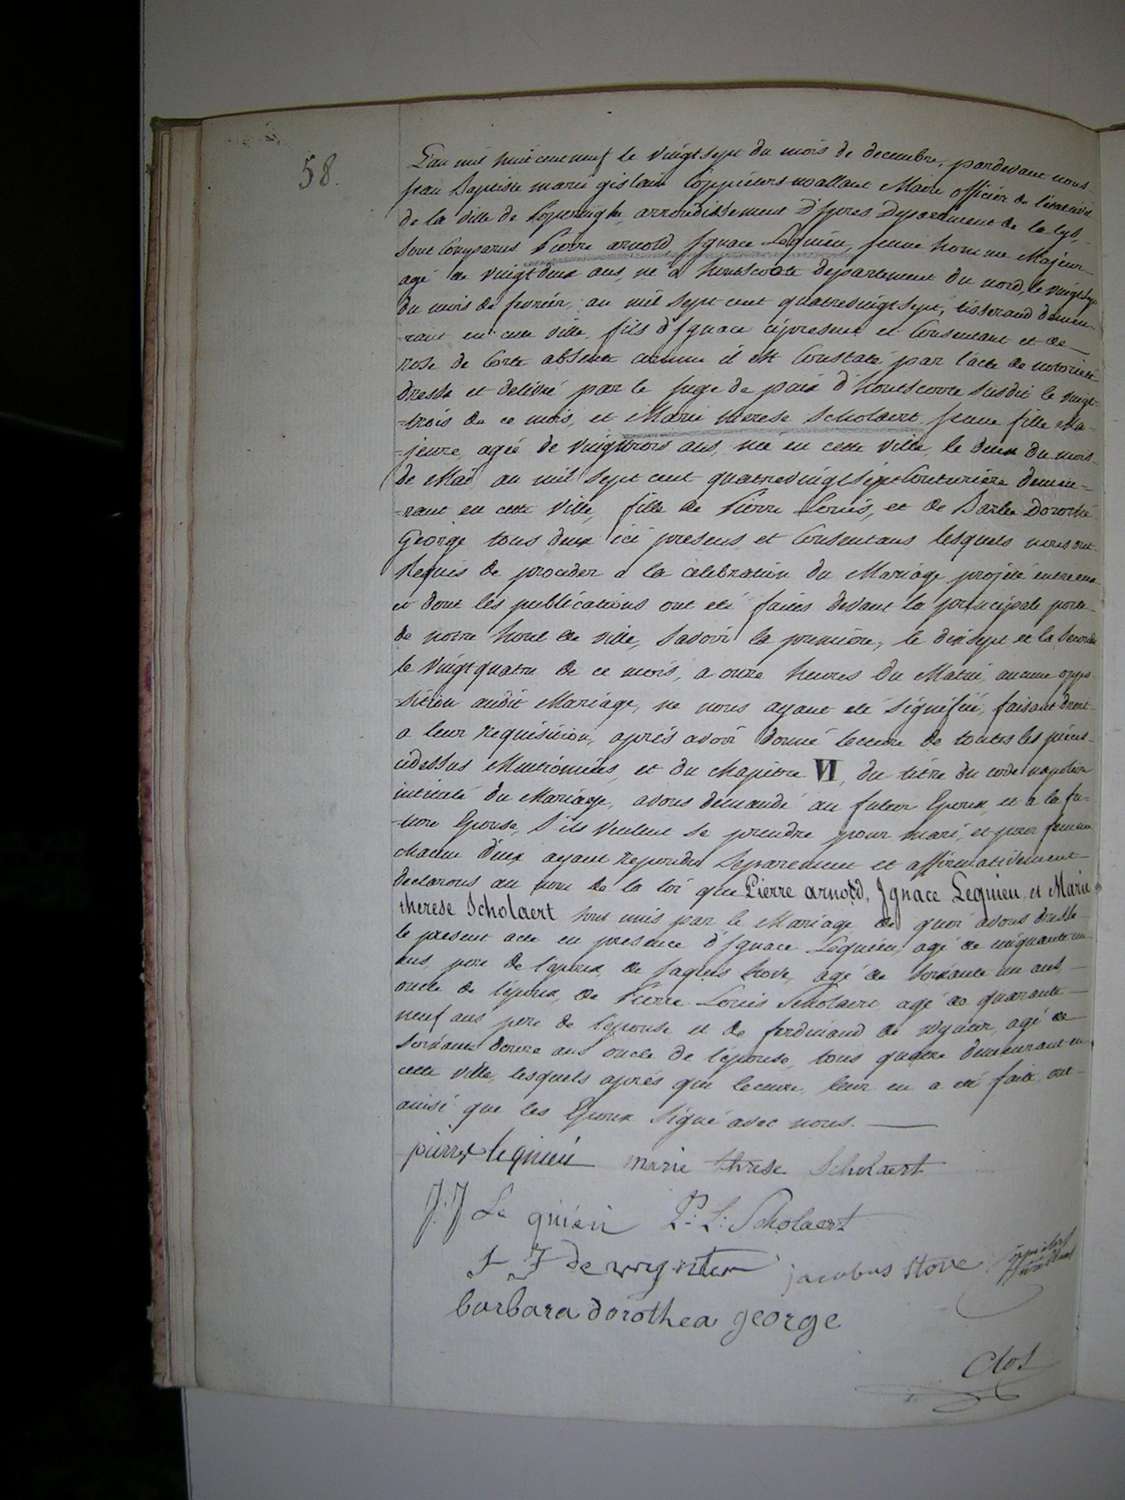 58.
L'an mil huit cent neuf le vingt sept du mois de decembre, pardevant nous
jean Baptiste marie gislain Coppieters wallant Maire officier de l'état civil
de la ville de Poperinghe, arrondissement d'Ypres Departement de la Lys,
sont Comparus Pierre arnold Ignace Lequien, jeune homme Majeur
agé de vingt deux ans, né a hontscoote departement du nord, le vingt sept
du mois de fevrier, an mil sept cent quatre vingt sept, tisserand demeu-
-rant en cette ville, fils d'Ignace ci present et Consentant et de
rose de Corte absente comme il est Constaté par l'acte de notorieté
dressé et delivré par le juge de paix d'hontscoote susdit le vingt-
-trois de ce mois, et Marie therese Scholaert, jeune fille ma-
-jeure, agée de vingt trois ans, née en cette ville, le deux du mois
de Mai an mil sept cent quatre vingt six Couturière demeu-
-rant en cette ville, fille de Pierre Louis, et de Barbe Dorothé
George tous deux ici presens et Consentans lesquels nous ont
Requis de proceder a la célébration du Mariage projeté entre eux
et dont les publications ont été faites devant la principale porte
de notre hotel de ville, Savoir la premiere, le dix sept et la Seconde
le vingt quatre de ce mois, a onze heures du Matin, aucune oppo
sition audit Mariage, ne nous ayant été signifiée, faisant droit
a leur Requisition, après avoir donné lecture de toutes les pièces
cidessus Mentionnées, et du chapitre VI, du titre du code napoleon
intitulé du Mariage, avons demandé au futeur Epoux, et a la fu-
-ture Epouse, s'ils veulent se prendre pour mari, et pour femme
chacun d'eux ayant repondu Separement et affirmativement
declarons au nom de la loi que Pierre arnold, Ignace Lequien, et Marie
therese Scholaert sont unis par le Mariage de quoi avons dressé
le present acte en presence d'Ignace Lequien, agé de cinquante un
ans, pere de l'epoux, de jaques Stove, agé de soixante un ans,
oncle de l'époux, de Pierre Louis Scholaert agé de quarante
neuf ans pere de l'epouse et de ferdinand de wynter, agé de
soixante douze ans oncle de l'épouse, tous quatre demeurant en
cette ville, lesquels après que lecture, leur en a été faite, ont
ainsi que les Epoux signé avec nous.
pierre lequien marie threse Scholaert
J: J Le quien P: L: Scholaert
F J de wynter jacobus stove Coppieters
Wallant
barbara dorothea george
Clos